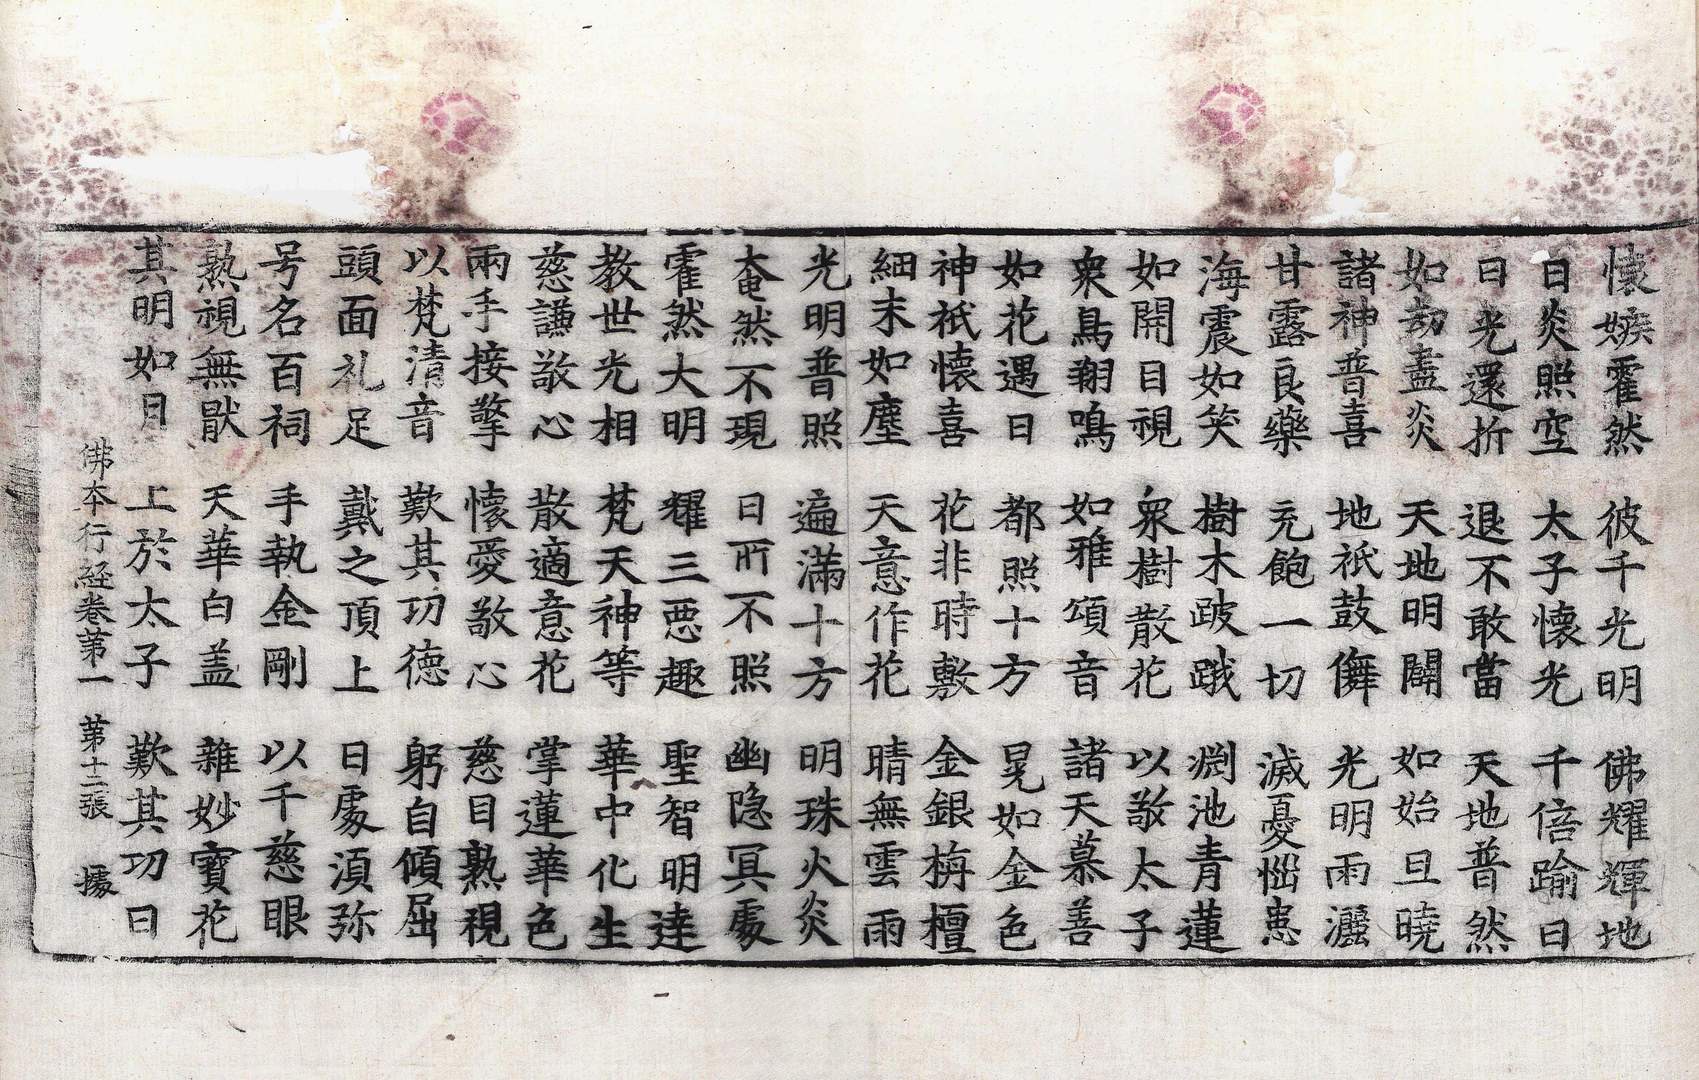 懷嫉霍然 彼千光明 佛耀輝地
日炎照空 太子懷光 千倍踰日
日光還折 退不敢當 天地普然
如劫盡炎 天地明闢 如始旦曉
諸神普喜 地祇鼓儛 光明雨灑
甘露良藥 充飽一切 滅憂惱患
海震如笑 樹木跛𨁟 淵池青蓮
如開目視 衆樹散花 以敬太子
衆鳥翔鳴 如雅頌音 諸天慕善
如花遇日 都照十方 晃如金色
神祇懷喜 花非時敷 金銀栴檀
細末如塵 天意作花 晴無雲雨
光明普照 遍滿十方 明珠火炎
奄然不現 日所不照 幽隐冥處
霍然大明 耀三惡趣 聖智明達
教世光相 梵天神等 華中化生
慈謙敬心 散適意花 掌蓮華色
兩手接擎 懷愛敬心 慈目熟視
以梵清音 歎其功德 躬自傾屈
頭面礼足 戴之頂上 日處湏弥
号名百祠 手執金剛 以千慈眼
熟視無猒 天華白盖 雜妙寶花
其明如日 上於太子 歎其功曰
佛本行経卷苐一 苐十二張 據